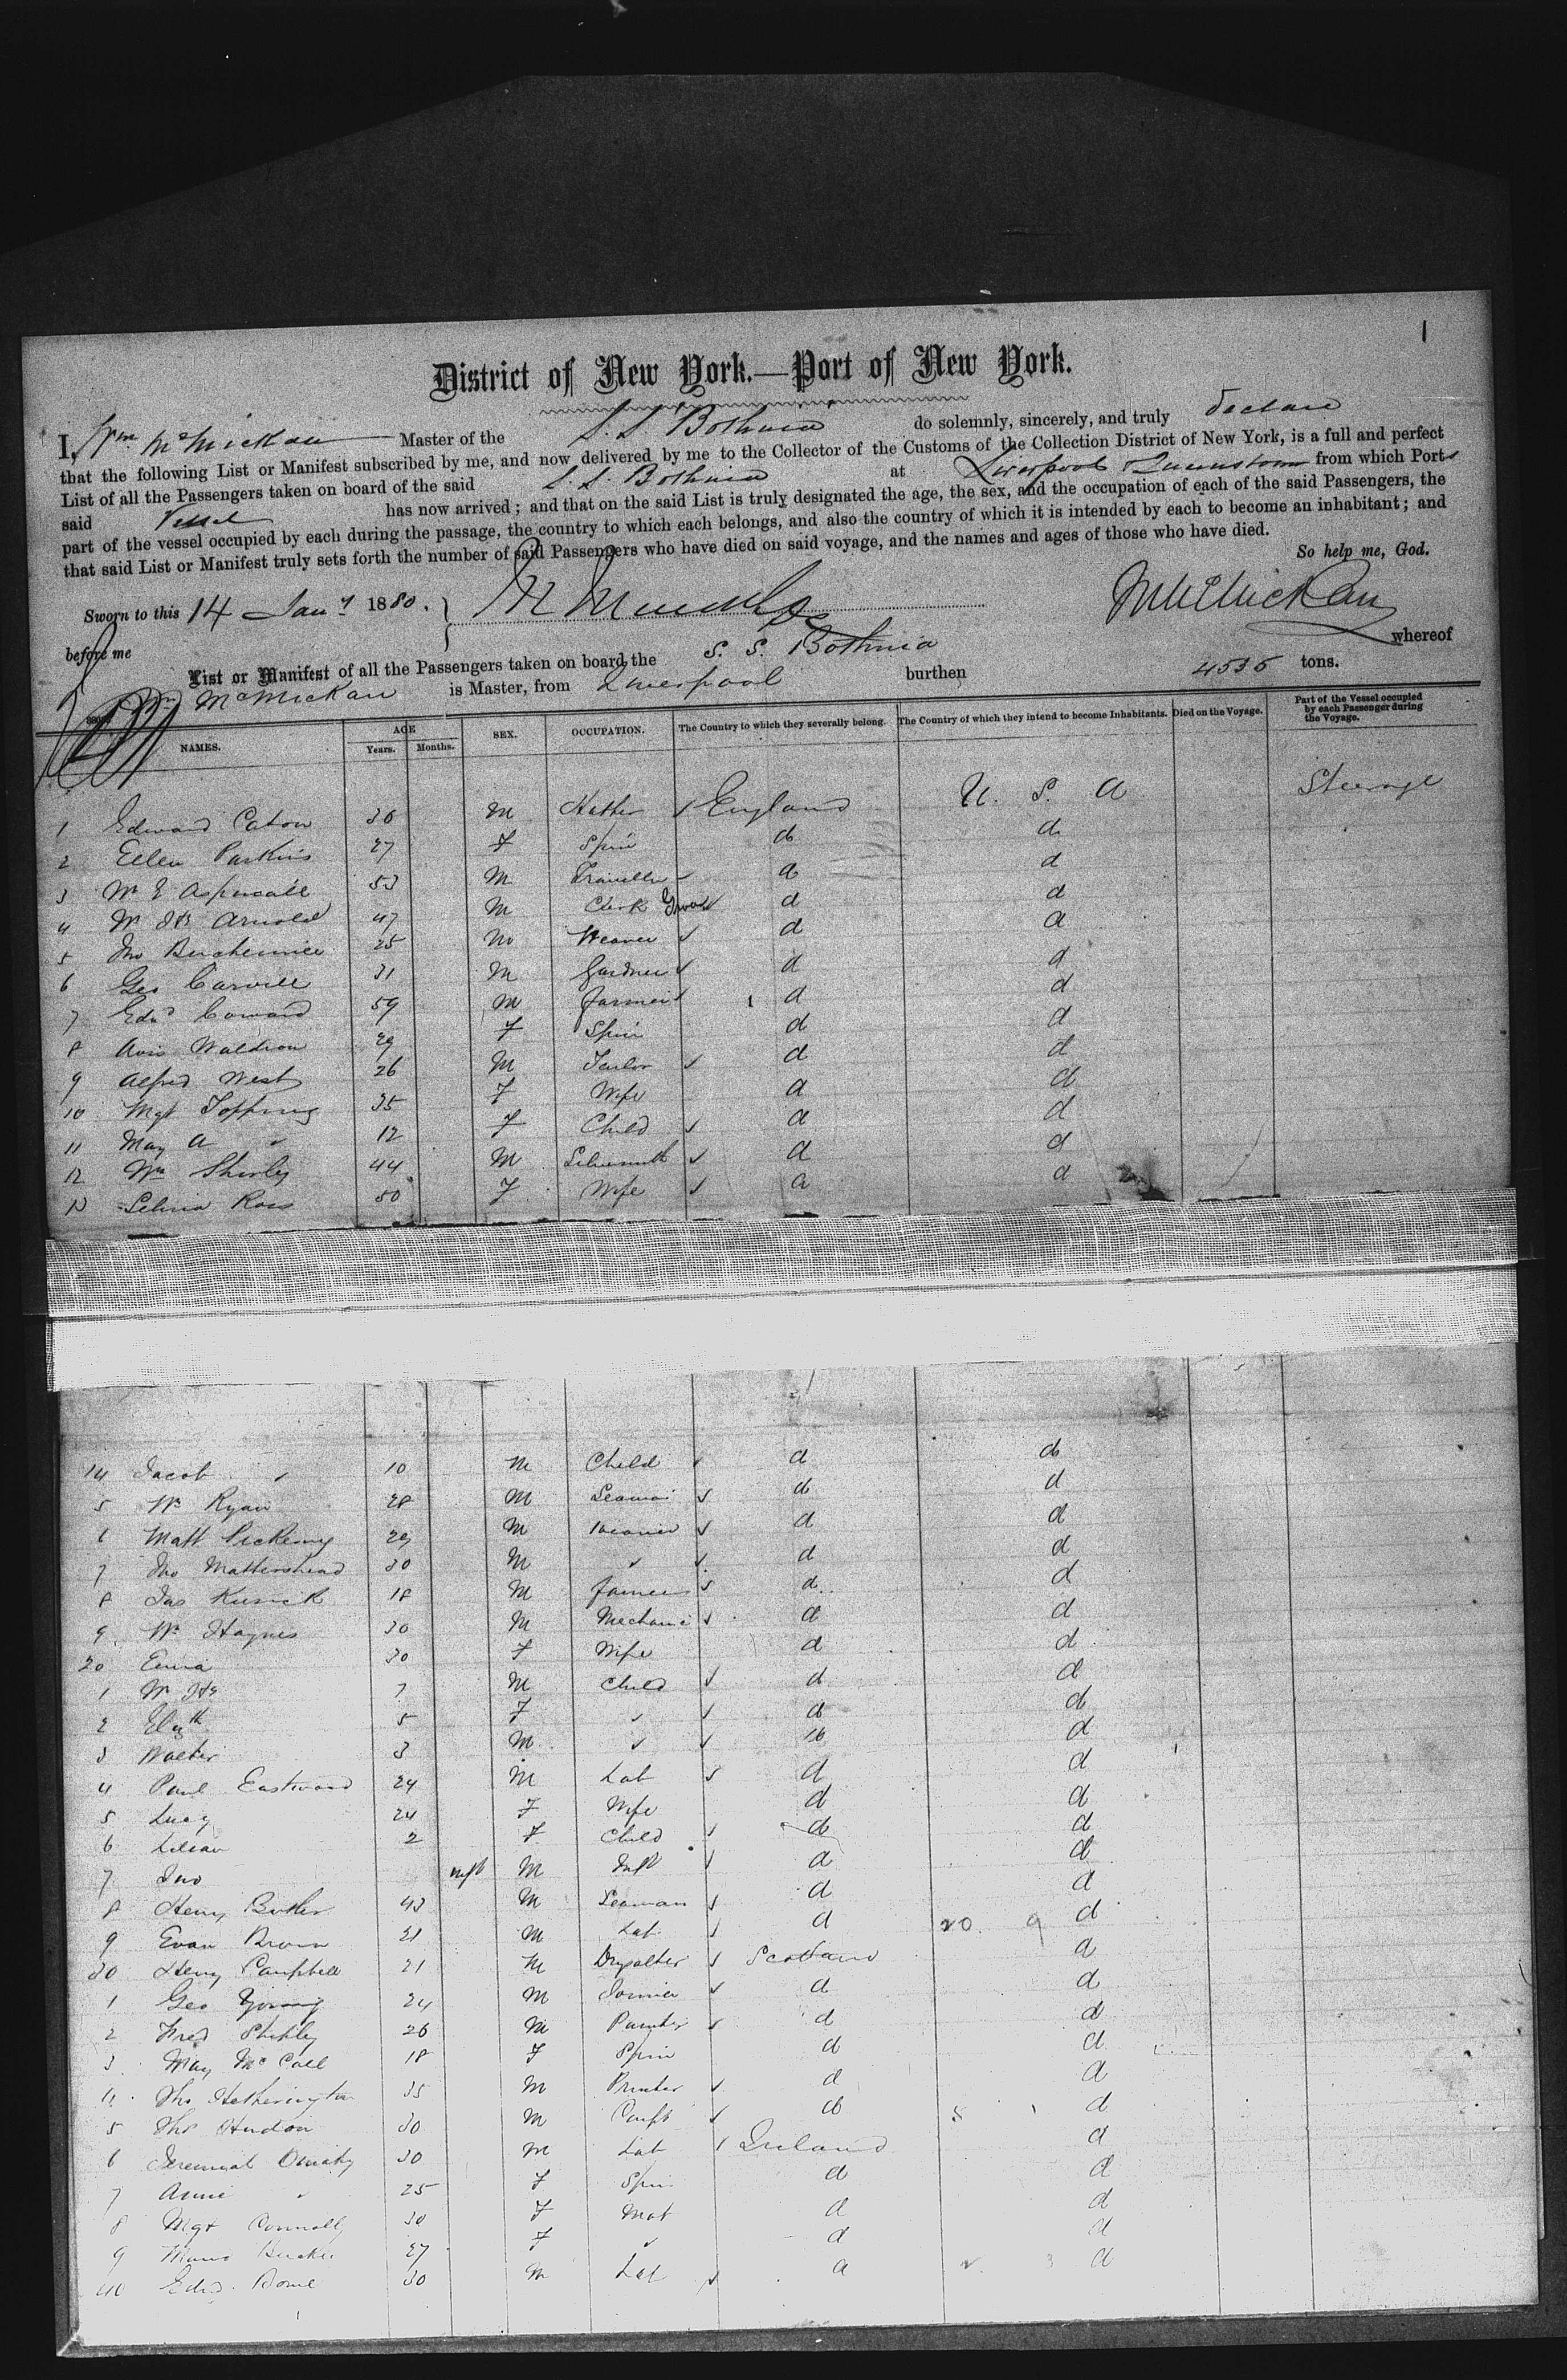 1
District of New York.—Port of New York.
I, Wm McMickan Master of the S. S. Bothnia do solemnly, sincerely, and truly declare
that the following List or Manifest subscribed by me, and now delivered by me to the Collector of the Customs of the Collection District of New York, is a full and perfect
List of all the Passengers taken on board of the said S. S. Bothnia at Liverpool & Queenstown from which Ports
said Vessel has now arrived; and that on the said List is truly designated the age, the sex, and the occupation of each of the said Passengers, the
part of the vessel occupied by each during the passage, the country to which each belongs, and also the country of which it is intended by each to become an inhabitant; and
that said List or Manifest truly sets forth the number of said Passengers who have died on said voyage, and the names and ages of those who have died.
So help me, God.
Sworn to this 14 Jany 1880.
W McMickan
before me
List or Manifest of all the Passengers taken on board the S. S. Bothnia whereof
Wm McMickan is Master, from Liverpool burthen 4535 tons.
NAMES. AGE Years. Months. SEX. OCCUPATION. The Country to which they severally belong. The Country of which they intend to become Inhabitants. Died on the Voyage. Part of the Vessel occupied by each Passenger during the Voyage.
1 Edward Caton 36 M Hatter England U. S. A Steerage
2 Ellen Parkins 27 F Spin do do
3 Wm E Aspinall 53 M Traveller do d
4 Wm Arnold 47 M Clerk d d
5 Jno 25 M Weaver d d
6 Geo Carvill 31 M Gardner d d
7 Edwd Coward 59 M farmer d d
8 Avis Waldron 29 F Spin d d
9 Alfred West 26 M Tailor d d
10 Mgt Topping 35 F Wife d d
11 May A " 12 F Child d d
12 Wm Shirley 44 M Silversmith d d
13 Selina Ross 50 F Wife d d
14 Jacob " 10 M Child d do
5 Wm Ryan 28 M Seaman do d
6 Matt Pickering 29 M d d
7 Jno Mattershead 30 M " d d
8 Jas Kusick 18 M farmer d d
9 Wm Haynes 30 M Mechanic d d
20 Emma 30 F Wife d d
1 Wm 7 M Child d d
2 Elizth 5 F " do d
3 Walter 3 M " do d
4 Paul Eastwood 24 M Lab d d
5 Lucy 24 F Wife d d
6 Lilian 2 F Child do d
7 Jno inft M Inft d d
8 Henry Butler 43 M Seaman d d
9 Evan Brown 21 M Lab d 20 9 d
30 Henry Campbell 21 M Drysalter Scotland d
1 Geo Young 24 M Joiner d d
2 Fred 26 M Painter d d
3 May McCall 18 F Spin d d
4 Thos Hetherington 35 M Printer d d
5 Thos Hudson 30 M Carpt do 8 1 d
6 Jeremiah 30 M Lab Ireland d
7 Annie " 25 F Spin d d
8 Mgt Connolly 30 F Mat d d
9 27 F " d d
40 Edwd 30 M Lab d 2 3 d